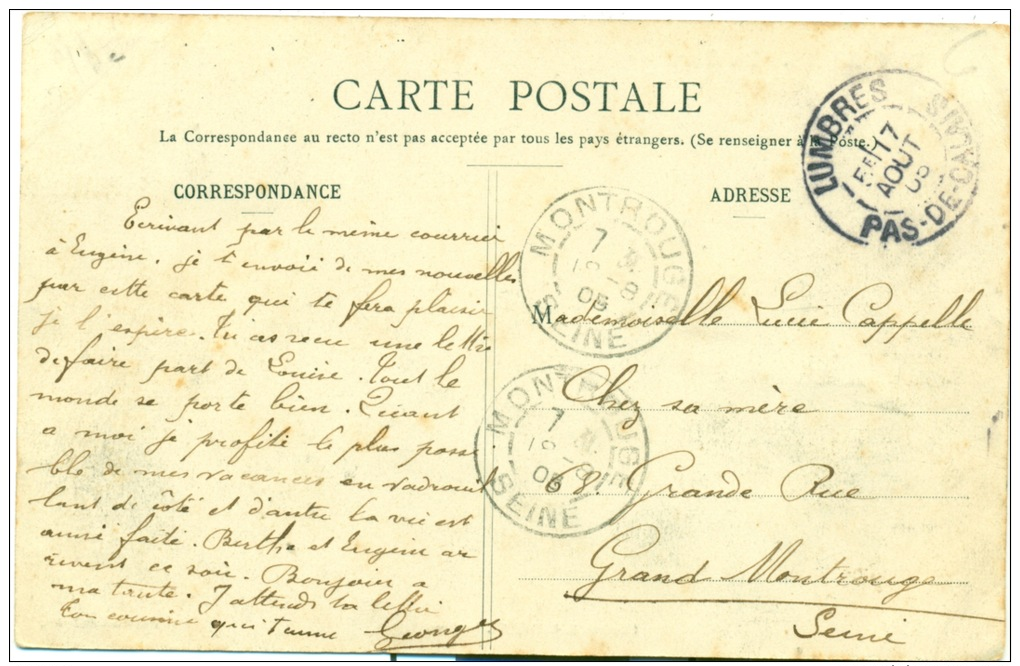 CARTE POSTALE
La Correspondance au recto n'est pas acceptée par tous les pays étrangers. (Se renseigner à la Poste.)
CORRESPONDANCE
Ecrivant par le même courrier
à Eugène, je t'envoie de mes nouvelles
par cette carte qui te fera plaisir
je l'espère. Tu as reçu une lettre
de faire part de Louise. Tout le
monde se porte bien. Quant
a moi je profite le plus possi
ble de mes vacances en vadrouil
lant de côté et d'autre la vie est
ainsi faite. Berthe et Eugène ar
rivent ce soir. Bonjour a
ma tante. J'attends ta lettre
Ton cousin qui t'aime Georges
ADRESSE
Mademoiselle Lucie Cappelle
Chez sa mère
68. Grande Rue
Grand Montrouge
Seine
LUMBRES
PAS-DE-CALAIS
17
AOUT
MONTROUGE
7
18 -8
06
SEINE
MONTROUGE
7
18 -8
06
SEINE